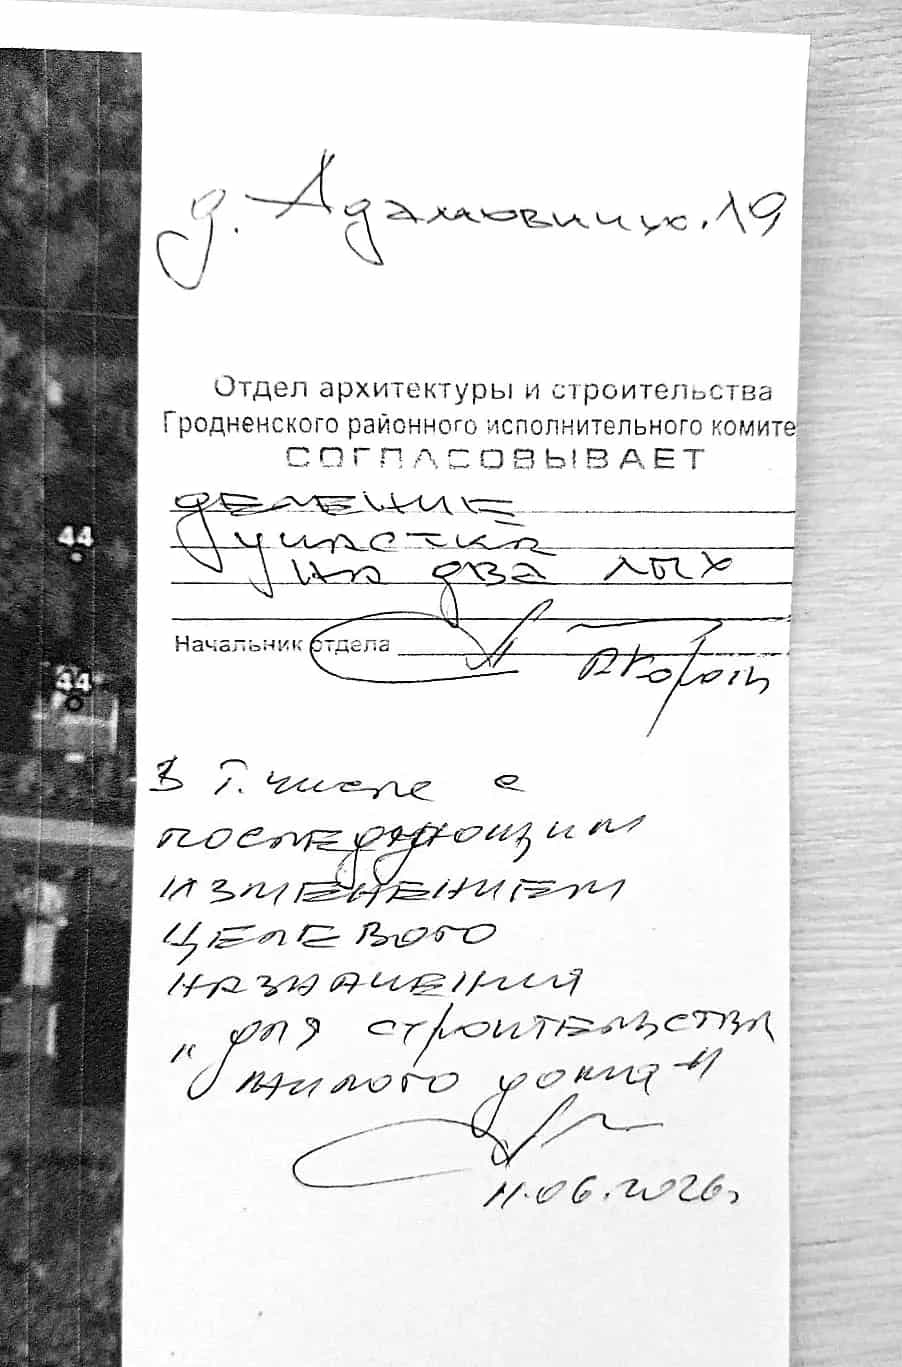 д. Адамовичи, 19
Отдел архитектуры и строительства
Гродненского районного исполнительного комите
СОГЛАСОВЫВАЕТ
ДЕЛЕНИЕ
УЧАСТКА
НА ДВА
Начальник отдела
44
44
В т. числе с
последующим
изменением
целевого
назначения
"для строительства
жилого дома"
11.06.2026г